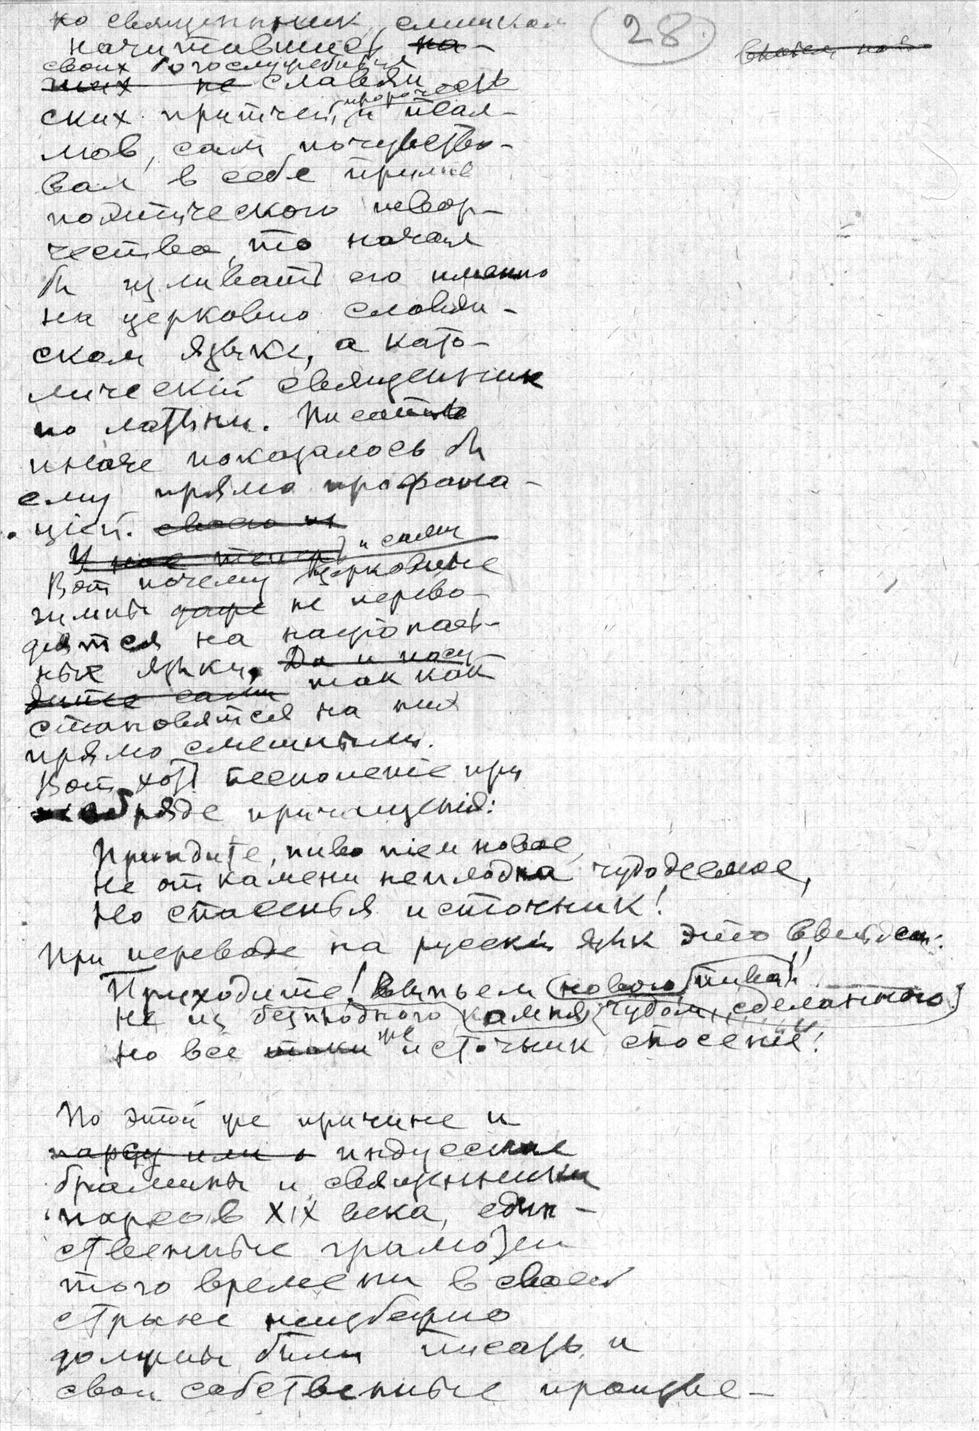 28
ко священник, слишком
начитавшись на-
своих богослужебных
ших не славян
ских притчей, пророчеств и псал-
мов, сам почувство-
вал в себе прилив
поэтического твор-
чества, то начал
бы изливать его именно
на церковно словян-
ском языке, а като-
лическій священник
по латыни. Писать
иначе показалось бы
ему прямо профана-
ціей. своего
У нас теперь и сами
Вот почему церковные
гимны даже не перево-
дятся на національ-
ных языки, так как
становятся на них
прямо смешными.
Вот хоть песнопеніе при
обряде причащенія:
Приидите, пиво піем новое,
не от камени неплодна чудодеемое,
но спасенья источник!
При переводе на русскій язык это выйдет:
Приходите! Выпьем нового пива!
не из безплодного камня чудом сделанного
но все таки же источник спасенія!
По этой же причине и
индусскіе
брамины и священники
парсов XIX века, един-
ственные грамотеи
того времени в своей
стране неизбежно
должны были писать и
свои собственные произве-